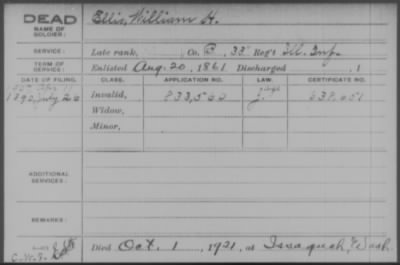 DEAD
NAME OF SOLDIER: Ellis, William H.
SERVICE: Late rank, Co. C, 33" Reg't Ill. Inf.
TERM OF SERVICE: Enlisted Aug. 20, 1861 Discharged , 1
DATE OF FILING. CLASS. APPLICATION NO. LAW. CERTIFICATE NO.
1890 July 26 Invalid, 833,502 638,651
Widow,
Minor,
ADDITIONAL SERVICES:
REMARKS:
Died Oct. 1, 1921, at Issaquah, Wash.